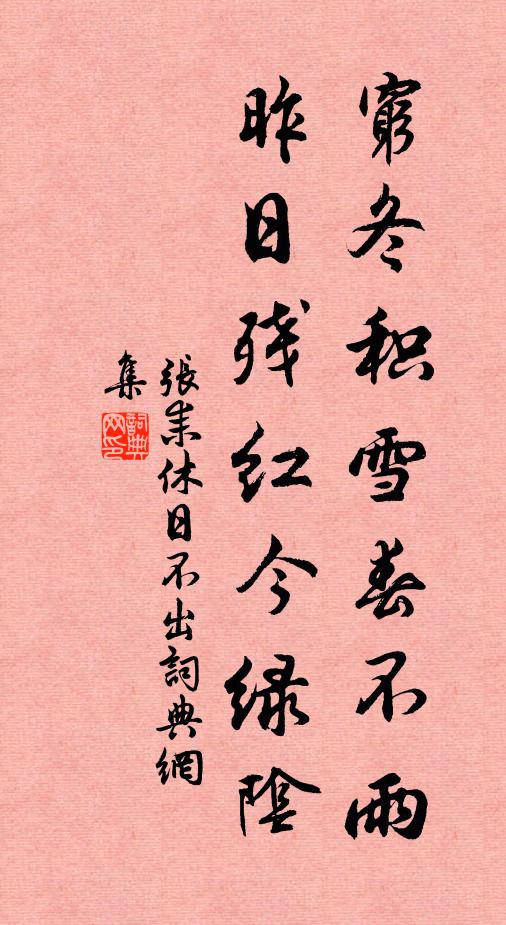 窮冬积雪春不雨
昨日残红今绿陰
張耒休日不出詞典網
集
詞典网印